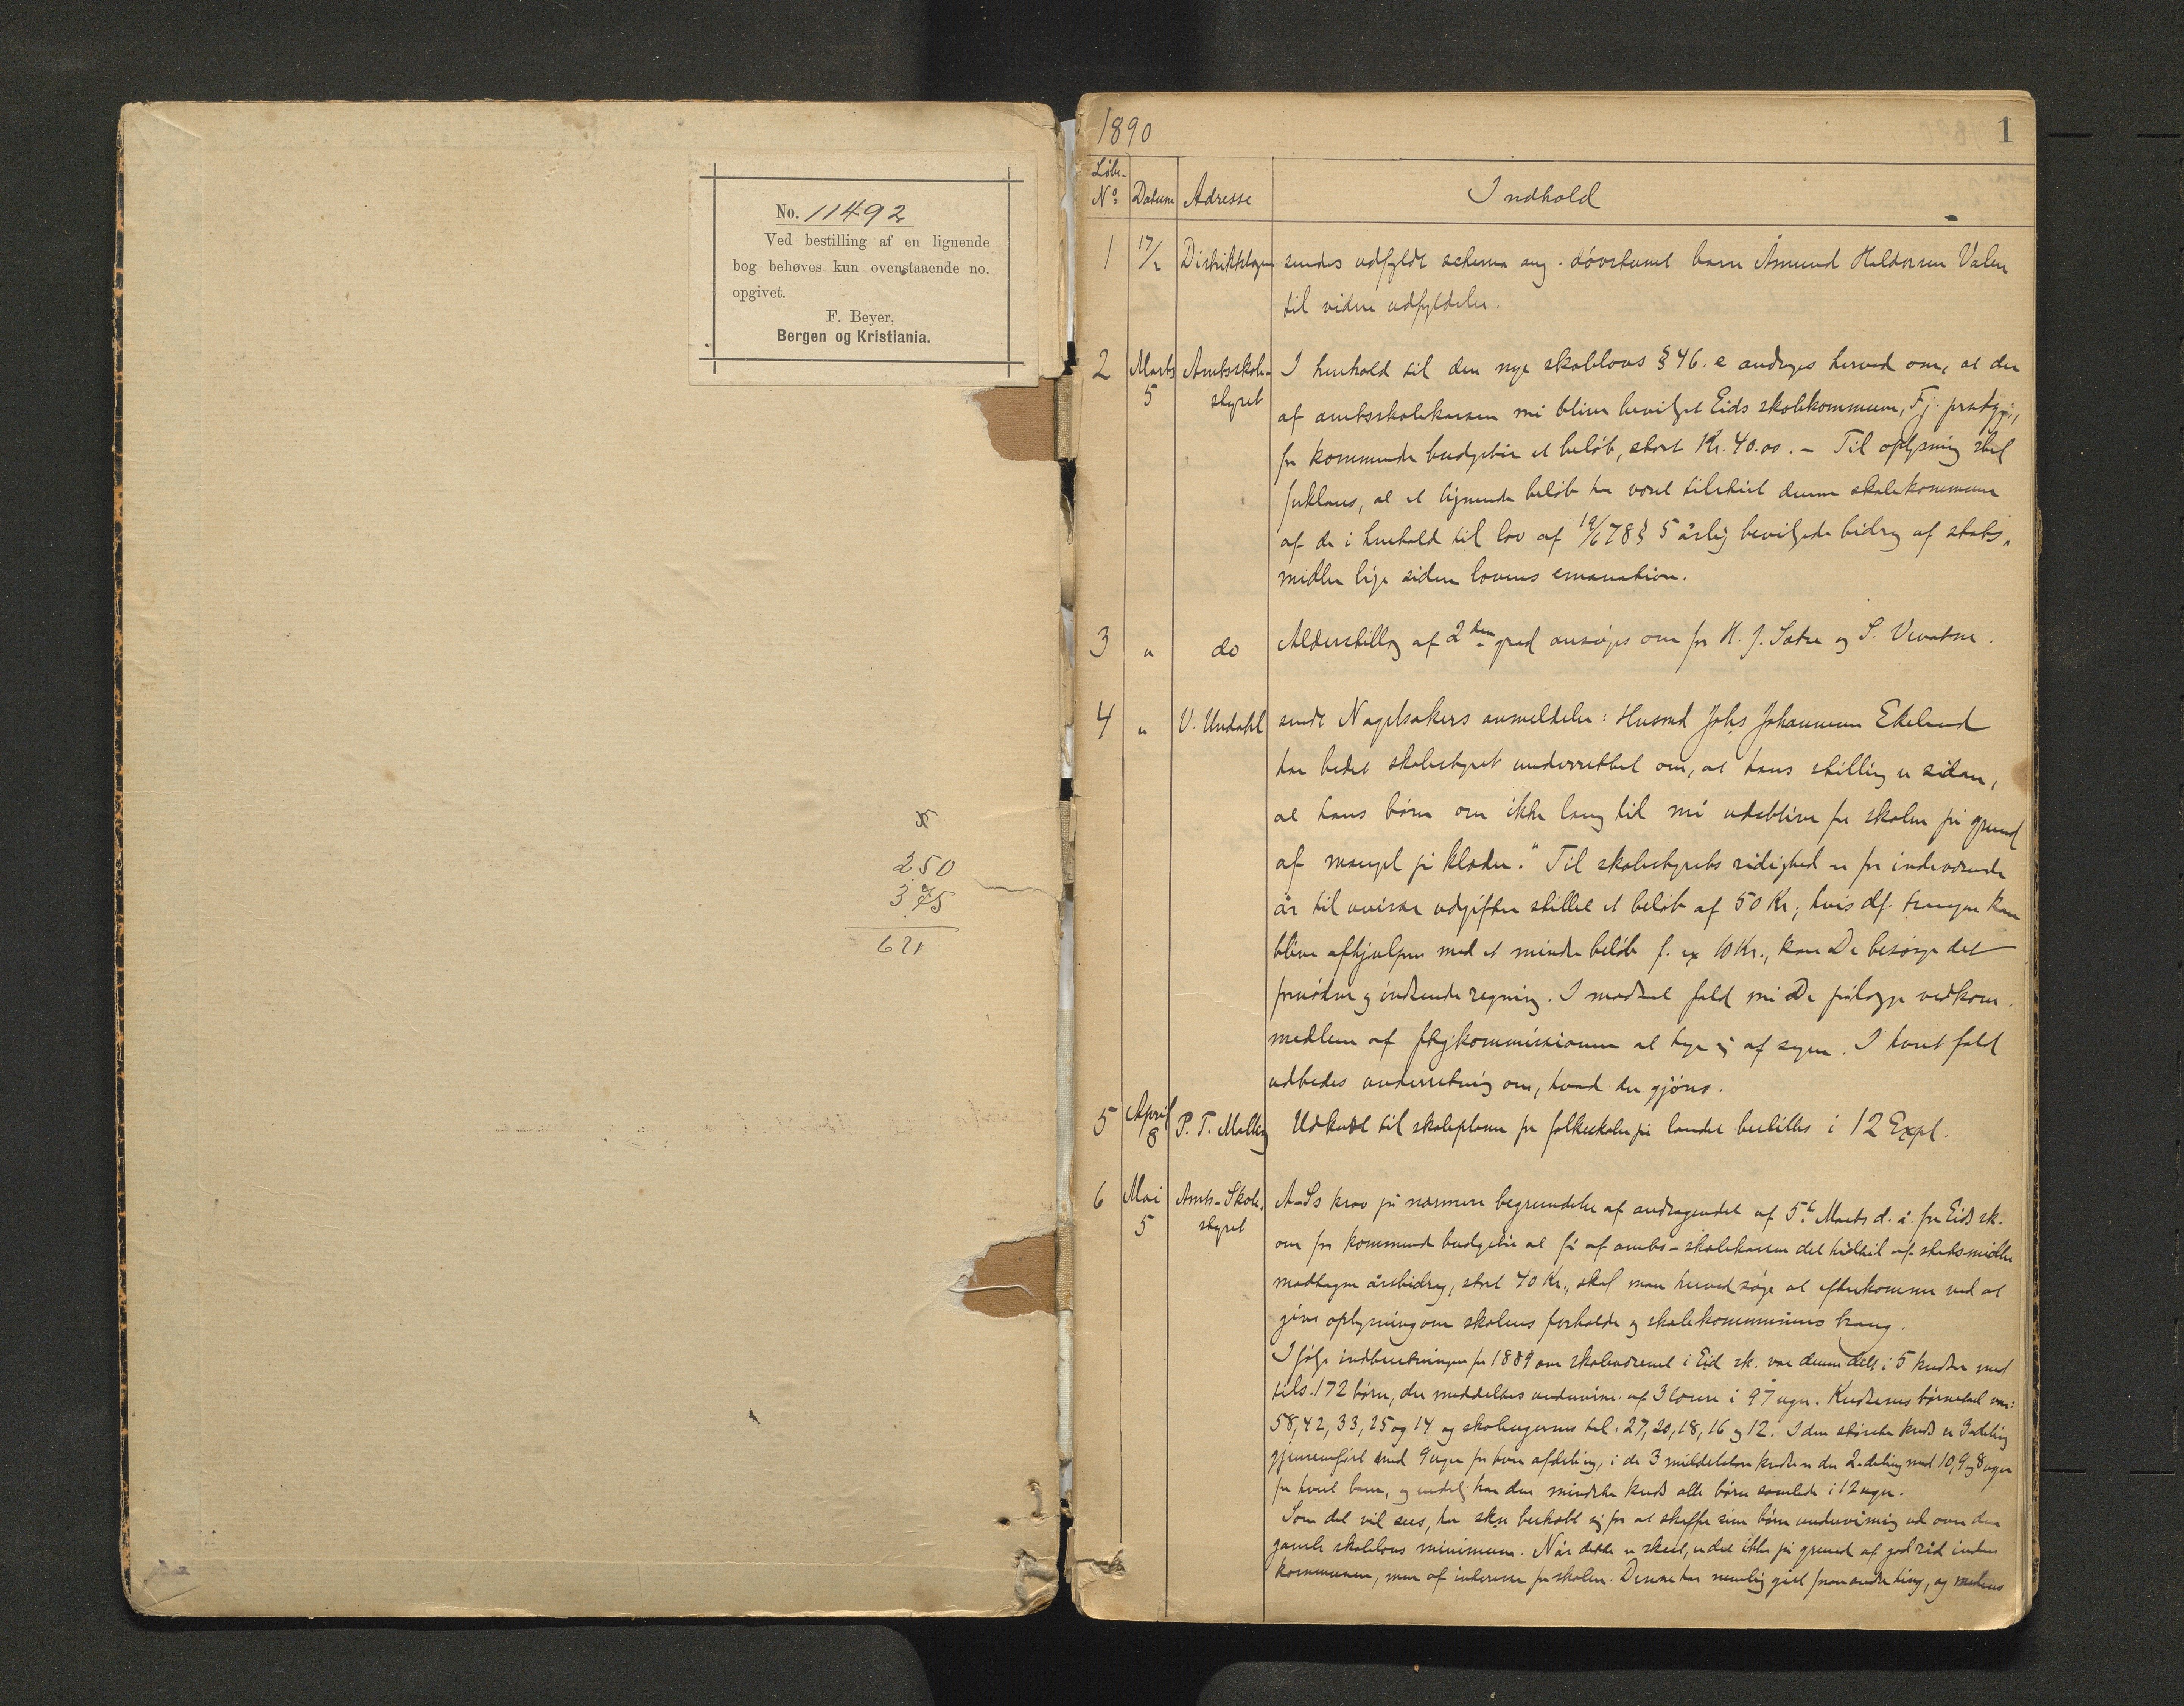 No. 11492
Ved bestilling af en lignende
bog behøves kun ovenstaaende no.
opgivet.
F. Beyer,
Bergen og Kristiania.
250
375
1890
1
Løbe-
No Datum Adresse Indhold
1 17/2 Distriktslægen sendes udfyldt schema ang. døvstumt barn Åmund Haldorsen Valen
til videre udfyldelse.
2 Marts 5 Amtsskole-styret I henhold til den nye skolelovs § 46. e andrages herved om, at der
af amtsskolekassen må blive bevilget Eids skolekommune, Fj. prstgj.,
for kommende budgetår et beløb, stort Kr. 40.00. – Til oplysning skal
forklares, at et lignende beløb har været tilstået denne skolekommune
af de i henhold til lov af 19/6 78 § 5 årlig bevilgede bidrag af stats-
midler lige siden lovens emanation.
3 " do Alderstillæg af 2den grad ansøges om for H. J. Sætre og S. Vevatne.
4 " V. Undahl sendt Nagelsakers anmeldelse: Husmd Johs Johannesen Ekeland
har bedet skolestyret underrettet om, at hans stilling er sådan,
at hans børn om ikke lang tid må udeblive fra skolen på grund
af mangel på klæder." Til skolestyrets rådighed er for indeværende
år til uvisse udgifter stillet et beløb af 50 Kr; hvis df. trangen kan
blive afhjulpen med et mindre beløb f. ex 10 Kr., kan De besørge det
fornødne og indsende regning. I modsat fald må De pålægge vedkom.
medlem af fttgkommissionen at tage sig af sagen. I hvert fald
udbedes underretning om, hvad der gjøres.
5 April 8 P. T. Malling Udkast til skoleplaner for folkeskolen på landet bestilles i 12 Expl.
6 Mai 5 Amts-Skole-styret A-Ss krav på nærmere begrundelse af andragendet af 5te Marts d. å. fra Eids sk.
om for kommende budgetår at få af amts-skolekassen det hidtil af statsmidler
modtagne årsbidrag, stort 40 Kr., skal man herved søge at efterkomme ved at
give oplysning om skolens forholde og skolekommunens trang.
Ifølge indberetningen for 1889 om skolevæsenet i Eid sk. var denne delt i 5 kredse med
tils. 172 børn, der meddeltes undervisn. af 3 lærere i 97 uger. Kredsenes børnetal var:
58, 42, 33, 25 og 14 og skoleugernes tal: 27, 20, 18, 16 og 12. I den største kreds er 3deling
gjennemført med 9 uger for hver afdeling, i de 3 middelstore kredse er der 2-deling med 10, 9 og 8 uger
for hvert barn, og endelig har den mindste kreds alle børn samlede i 12 uger.
Som det vil sees, har skn bekostet sig for at skaffe sine børn undervisning ud over den
gamle skolelovs minimum. Når dette er skeet, er det ikke på grund af god råd inden
kommunen, men af interesse for skolen. Denne har nemlig gået fremandre ting, og